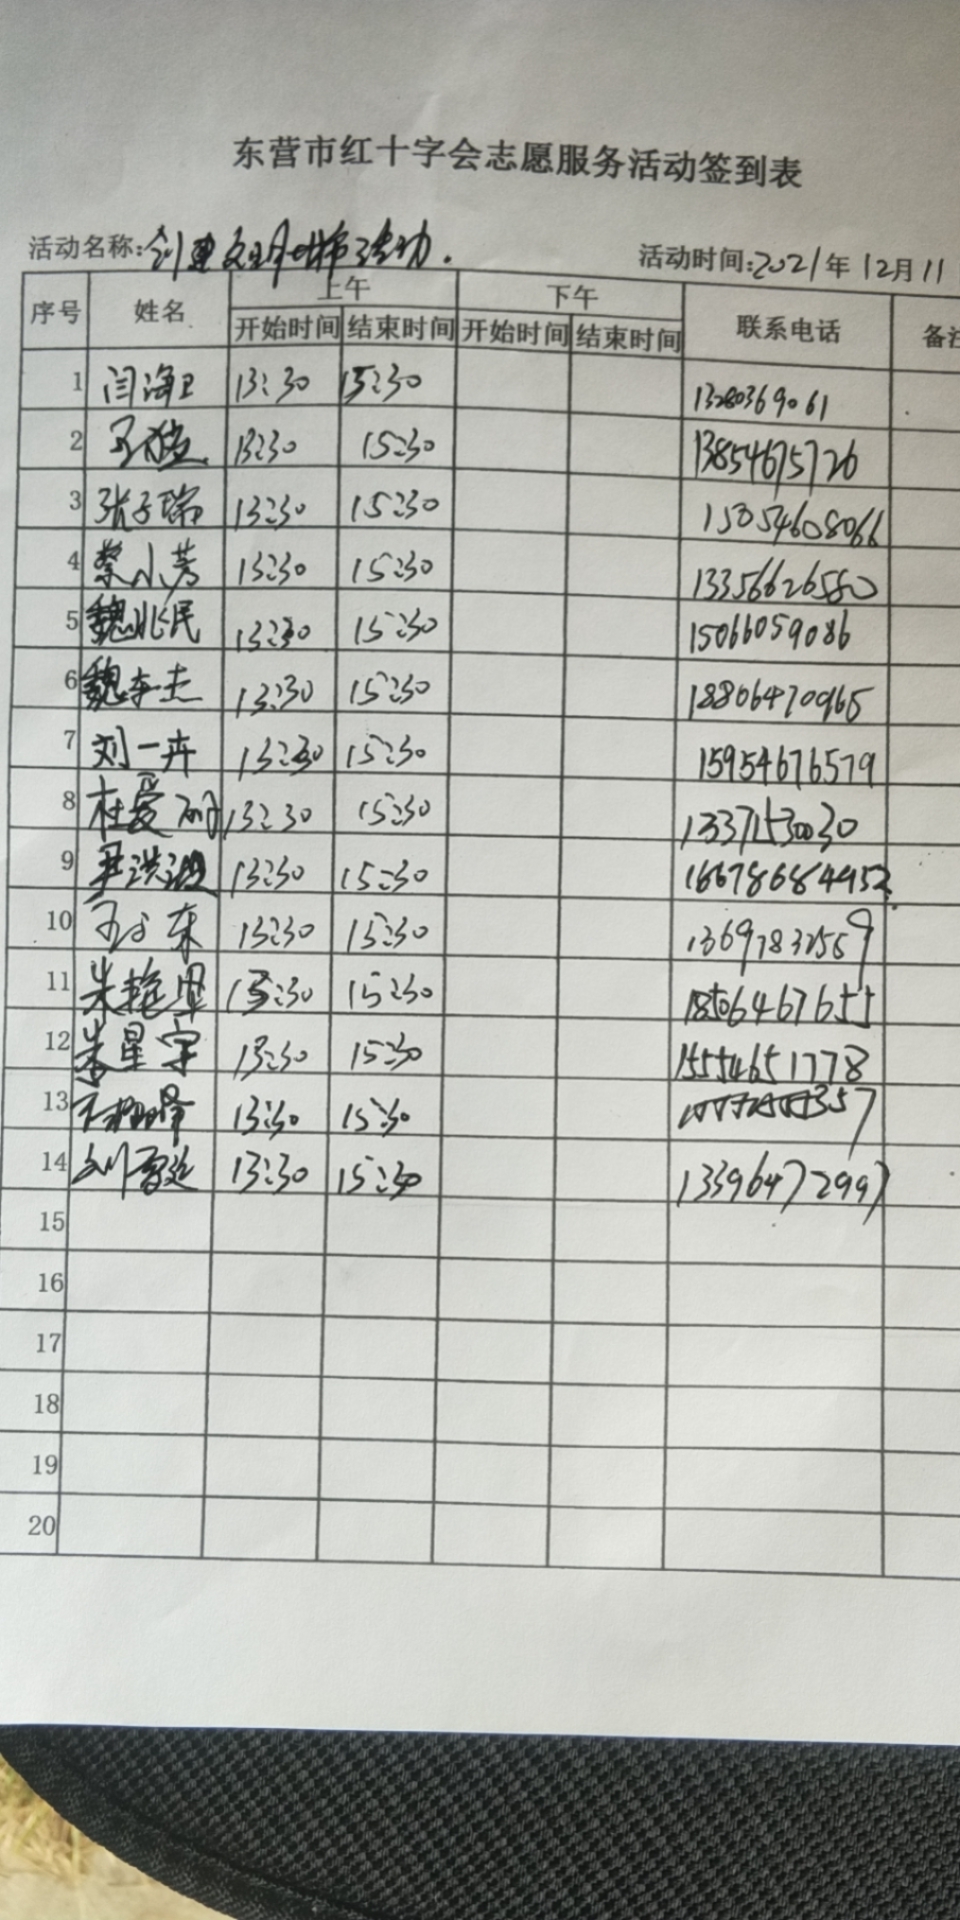 东营市红十字会志愿服务活动签到表
活动名称:创建文明城市活动. 活动时间:2021年12月11
序号 姓名 上午 下午 联系电话 备注
开始时间 结束时间 开始时间 结束时间
1 闫海卫 13:30 15:30 13280369061
2 13:30 15:30 13854675726
3 张子瑞 13:30 15:30 15054608066
4 蔡小芳 13:30 15:30 13356626580
5 魏兆民 13:30 15:30 15066059086
6 魏李杰 13:30 15:30 18806470965
7 刘一卉 13:30 15:30 15954676579
8 杜爱 13:30 15:30 13371530030
9 尹洪波 13:30 15:30
10 13:30 15:30 13697832559
11 朱艳军 13:30 15:30 18506467655
12 朱星宇 13:30 15:30 15554651778
13 13:30 15:30
14 13:30 15:30 13396472997
15
16
17
18
19
20